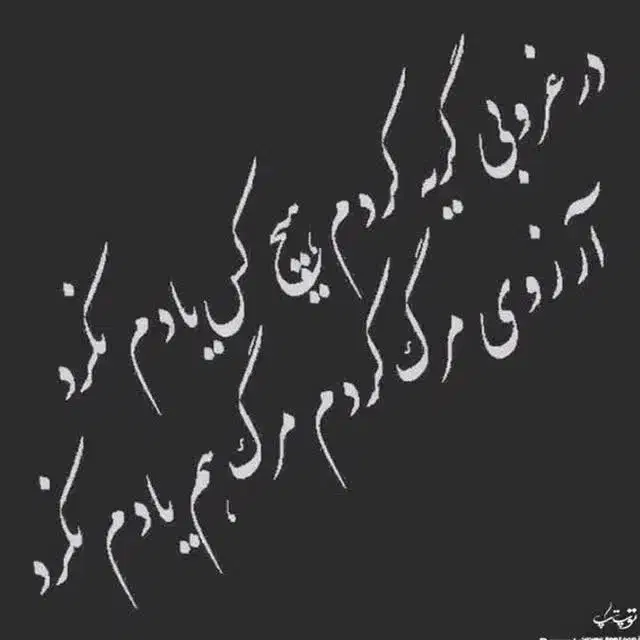 در غروبی گریه کردم هیچ کس یادم نکرد
آرزوی مرگ کردم مرگ هم یادم نکرد
توپ تاپ